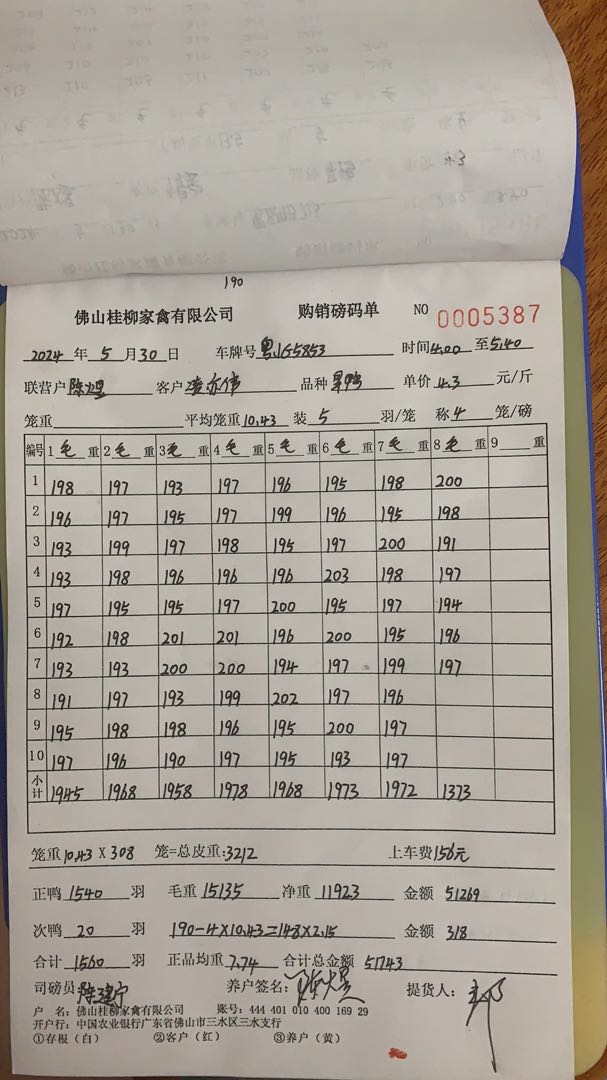 190
佛山桂柳家禽有限公司 购销磅码单 NO 0005387
2024 年 5 月 30 日 车牌号 粤JG5853 时间 4.00 至 5.40
联营户 陈煜 客户 凌亦伟 品种 单价 4.3 元/斤
笼重 平均笼重 10.43 装 5 羽/笼 称 4 笼/磅
编号 1 毛 重 2 毛 重 3 毛 重 4 毛 重 5 毛 重 6 毛 重 7 毛 重 8 毛 重 9 重
1 198 197 193 197 196 195 198 200
2 196 197 195 197 199 196 195 198
3 193 199 197 198 195 197 200 191
4 193 198 196 196 196 203 198 197
5 197 195 195 197 200 195 197 194
6 192 198 201 201 196 200 195 196
7 193 193 200 200 194 197 199 197
8 191 197 193 199 202 197 196
9 195 198 198 196 195 200 197
10 197 196 190 197 195 193 197
小计 1945 1968 1958 1978 1968 1973 1972 1373
笼重 10.43 X 308 笼=总皮重: 3212 上车费 156元
正鸭 1540 羽 毛重 15135 净重 11923 金额 51269
次鸭 20 羽 190-4×10.43=148×2.15 金额 318
合计 1560 羽 正品均重 7.74 合计总金额 51743
司磅员: 陈建宁 养户签名: 提货人:
户 名: 佛山桂柳家禽有限公司 账号: 444 401 010 400 169 29
开户行: 中国农业银行广东省佛山市三水区三水支行
①存根（白） ②客户（红） ③养户（黄）